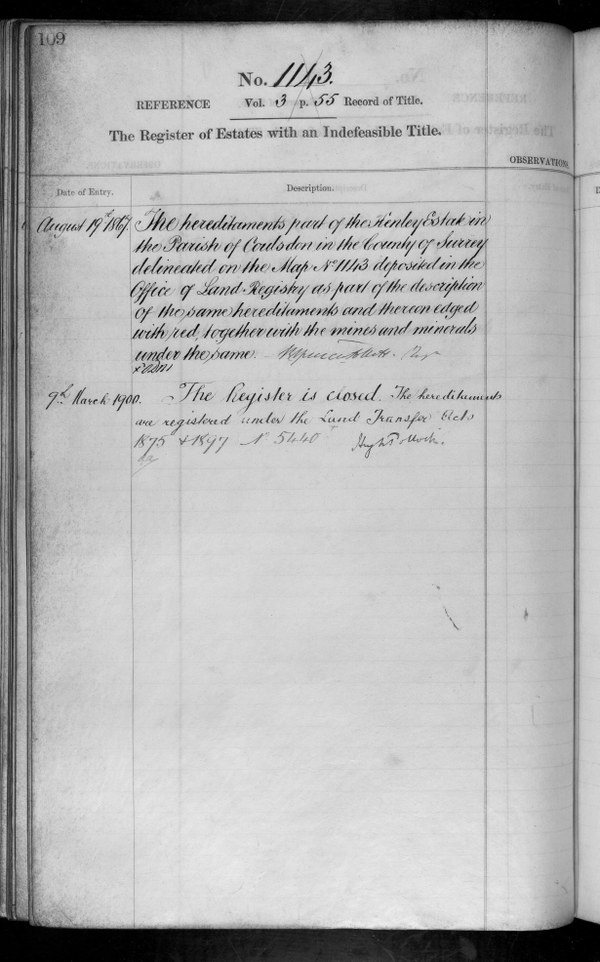 109
No. 1143.
REFERENCE Vol. 3 p. 55 Record of Title.
The Register of Estates with an Indefeasible Title.
OBSERVATIONS.
Date of Entry.
Description.
August 19th 1867.
The hereditaments part of the Henley Estate in
the Parish of Coulsdon in the County of Surrey
delineated on the Map No 1143 deposited in the
Office of Land Registry as part of the description
of the same hereditaments and thereon edged
with red, together with the mines and minerals
under the same.
9th March 1900. The Register is closed. The hereditaments
are registered under the Land Transfer Acts
1875 & 1897 No 5440